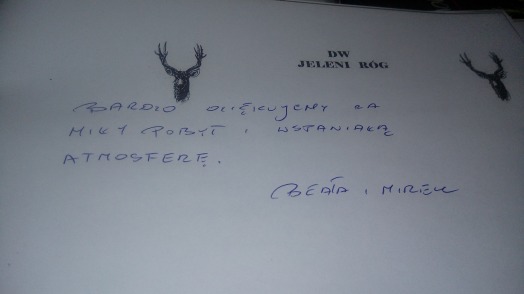 DW
JELENI RÓG
BARDZO DZIĘKUJEMY ZA
MIŁY POBYT I WSPANIAŁĄ
ATMOSFERĘ.
BEATA I MIREK